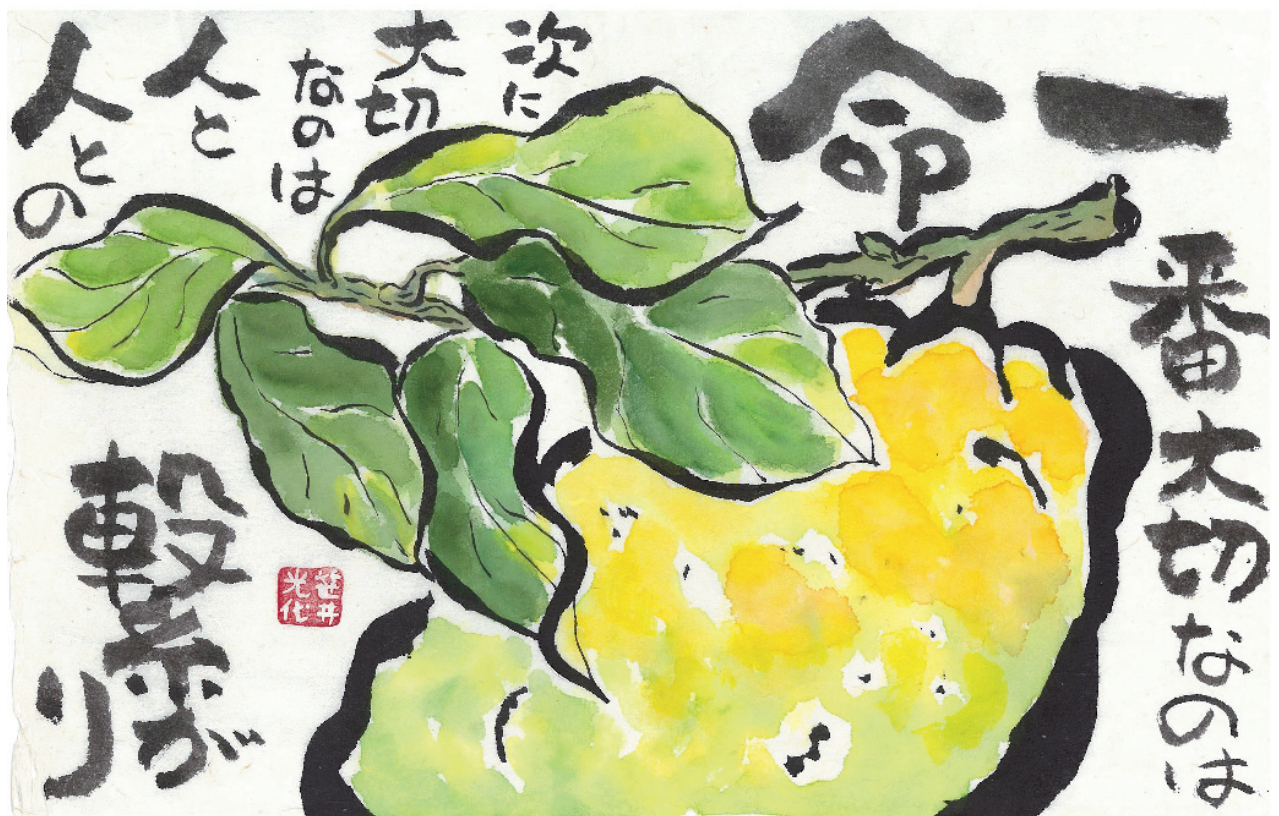 一番大切なのは
命
次に
大切
なのは
人と
人との
繋がり
笹井
光代